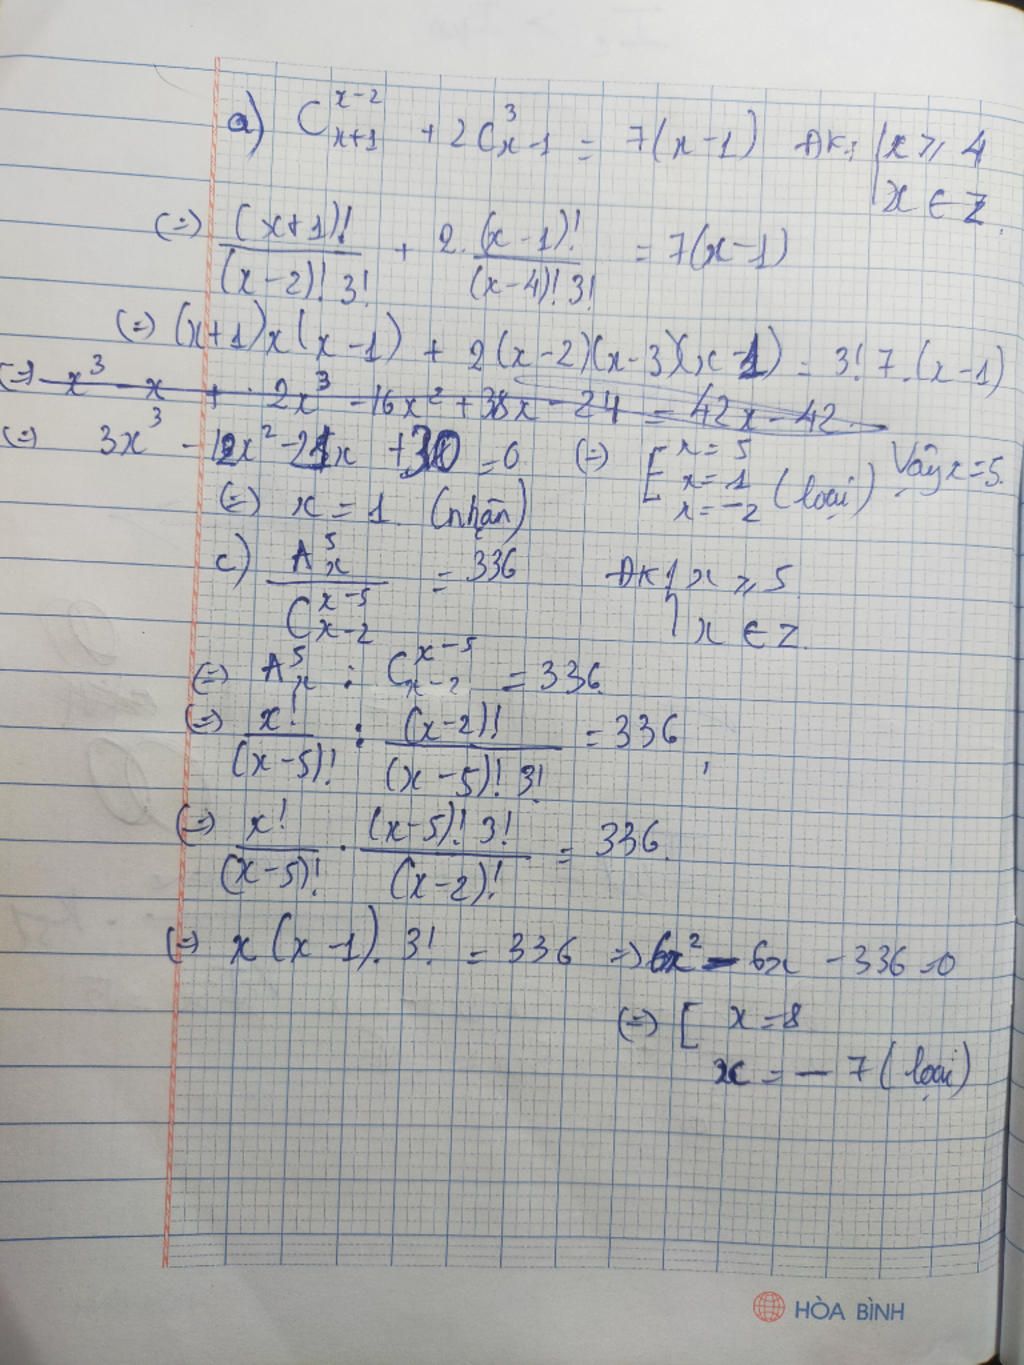 a) C_{x+1}^{x-2} + 2C_{x-1}^{3} = 7(x-1) ĐK: { x ≥ 4
x ∈ Z
(=) (x+1)!/((x-2)! 3!) + 2. (x-1)!/((x-4)! 3!) = 7(x-1)
(=) (x+1)x(x-1) + 2(x-2)(x-3)(x-1) = 3! 7.(x-1)
(=) x³ - x + 2x³ - 16x² + 38x - 24 = 42x - 42
(=) 3x³ - 12x² - 21x + 30 = 0 (=) [ x = 5
x = 1
x = -2 (loại) Vậy x = 5.
(=) x = 1. (nhận)
c) A_x^5 / C_{x-2}^{x-5} = 336 ĐK { x ≥ 5
x ∈ Z.
(=) A_x^5 : C_{x-2}^{x-5} = 336
(=) x!/(x-5)! : (x-2)!/((x-5)! 3!) = 336
(=) x!/(x-5)! . (x-5)! 3!/(x-2)! = 336.
(=) x(x-1). 3! = 336 => 6x² - 6x - 336 = 0
(=) [ x = 8
x = - 7 (loại)
HÒA BÌNH